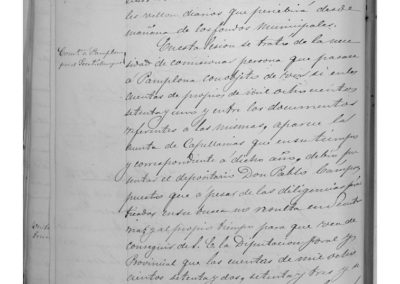 les vellon diarios que percibirá desde
mañana de los fondos municipales.
En esta sesion se trató de la nece
sidad de comisionar persona que pasase
á Pamplona con objeto de ver si en las
cuentas de propios de mil ochocientos
setenta y uno y entre los documentos
referentes á las mismas, aparece la
cuenta de Capellanias que en su tiempo
y correspondiente á dicho año, debió pre
sentar el depositario Don Pablo
puesto que á pesar de las diligencias prac
ticadas en su busca no resulta
mas, y al propio tiempo para que vea de
conseguir de S. E. la Diputacion foral y
Provincial que las cuentas de mil ocho
cientos setenta y dos, setenta y tres y
Comis.n á Pamplona